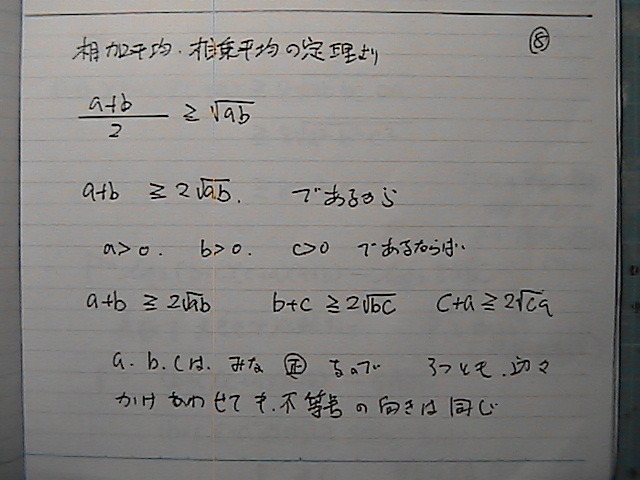 相加平均・相乗平均の定理より ⑧
a+b/2 ≧ √ab
a+b ≧ 2√ab. であるから
a>0. b>0. c>0 であるならば
a+b ≧ 2√ab b+c ≧ 2√bc c+a ≧ 2√ca
a.b.cは.みな㊣なので 3つとも.辺々
かけあわせても.不等号の向きは同じ